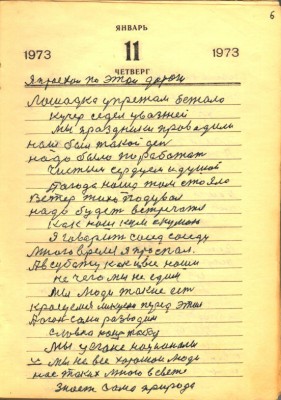 6
ЯНВАРЬ
1973 11 1973
ЧЕТВЕРГ
Я проехал по этой дороги
Лошадка упрежам бежало
Кучер седел уважней
Мы праздники проводили
нам был такой ден
надо было поработат
Чистым сердцем и душой
Погода наша там стояло
Ветер тихо подувал
надо будет встречат
как наш кум
Я говорит сосед соседу
много время я проспал.
А в субботу как две
не чего мы не едим
Мы люди такие ест
красуемся перед этим
сами разводим
словно нашу
Мы уегане начинали
мы не все хорошои люди
нас таких много в свете
Знает сама природа